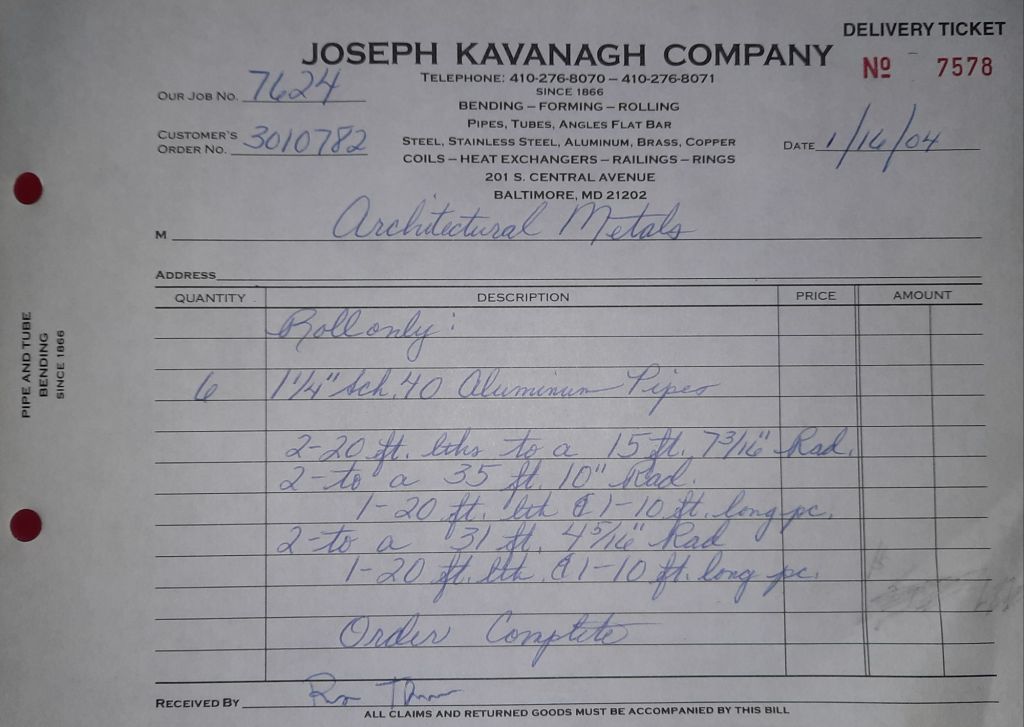 DELIVERY TICKET
JOSEPH KAVANAGH COMPANY
Nº 7578
TELEPHONE: 410-276-8070 – 410-276-8071
SINCE 1866
OUR JOB NO. 7624
BENDING – FORMING – ROLLING
PIPES, TUBES, ANGLES FLAT BAR
CUSTOMER'S
ORDER NO. 3010782
STEEL, STAINLESS STEEL, ALUMINUM, BRASS, COPPER
DATE 1/16/04
COILS – HEAT EXCHANGERS – RAILINGS – RINGS
201 S. CENTRAL AVENUE
BALTIMORE, MD 21202
M Architectural Metals
ADDRESS
QUANTITY DESCRIPTION PRICE AMOUNT
Roll only:
6 1 1/4" Sch. 40 Aluminum Pipes
2-20 ft. lths to a 15 ft. 7 3/16" Rad.
2-to a 35 ft. 10" Rad.
1-20 ft. lth & 1-10 ft. long pc.
2-to a 31 ft. 4 5/16" Rad
1-20 ft. lth & 1-10 ft. long pc.
Order Complete
RECEIVED BY
ALL CLAIMS AND RETURNED GOODS MUST BE ACCOMPANIED BY THIS BILL
PIPE AND TUBE
BENDING
SINCE 1866